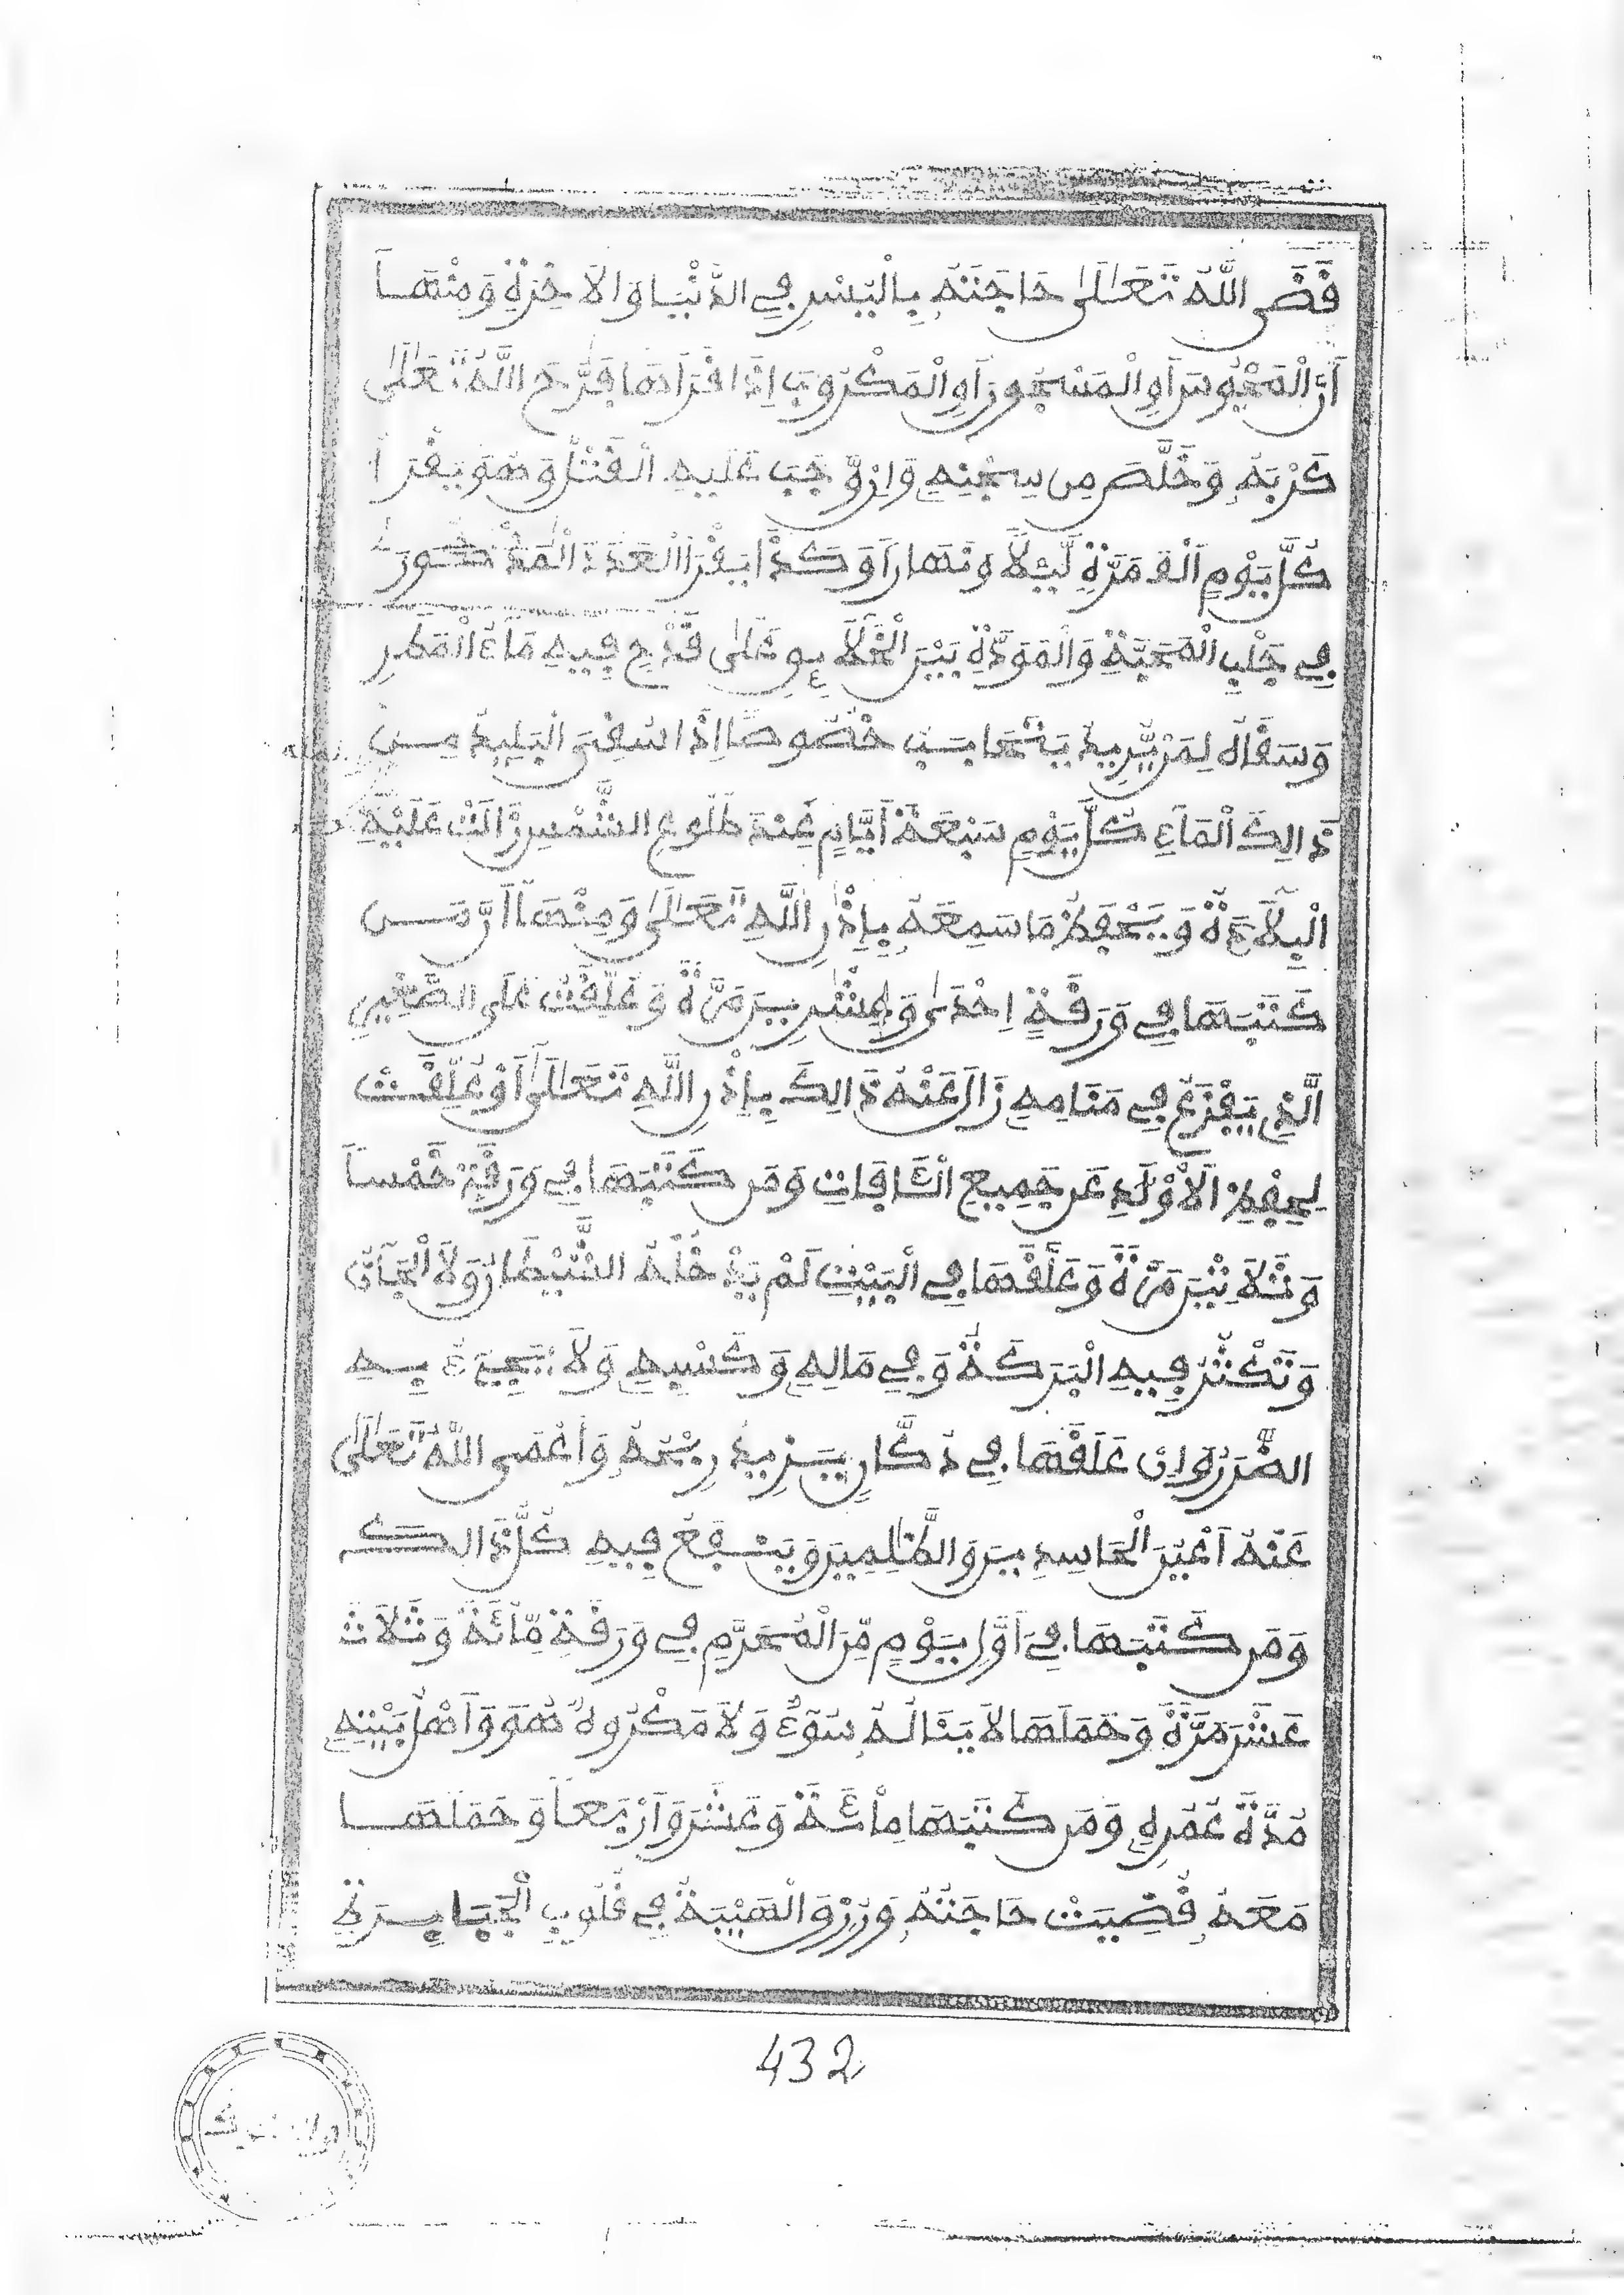 قَضَى اللَّهُ تَعَالَىٰ حَاجَتَهُ بِالْيُسْرِ فِي الدُّنْيَا وَالَاخِرَةِ وَمِنْهَا
أَنَّ الْمَحْبُوسَ أَوِ الْمَسْجُونَ أَوِ الْمَكْرُوبَ إِذَا قَرَأَهَا فَرَّجَ اللَّهُ تَعَالَىٰ
كَرْبَهُ وَخَلَّصَ مِن سِجْنِهِ وَإِن وَّجَبَ عَلَيْهِ الْقَتْلُ وَهُوَ يَقْرَأُ
كُلَّ يَوْمٍ أَلْفَ مَرَّةٍ لَّيْلًا وَنَهَارًا وَكَذَا يَقْرَأُ الْعَدَدَ الْمَذْكُورَ
فِي جَلْبِ الْمَحَبَّةِ وَالْمَوَدَّةِ بَيْنَ الْخَلَآئِقِ عَلَىٰ قَدْحٍ فِيهِ مَآءُ الْمَطَرِ
وَسَقَاهُ لِمَن يُّرِيدُ يَتَحَابَبُ خُصُوصًا إِذَا سُقِيَ الْبَلِيدُ مِنْ
ذَالِكَ الْمَآءِ كُلَّ يَوْمٍ سَبْعَةَ أَيَّامٍ عِنْدَ طُلُوعِ الشَّمْسِ زَالَتْ عَلَيْهِ
الْبِلَادَةُ وَيَحْفَظُ مَا سَمِعَهُ بِإِذْنِ اللَّهِ تَعَالَىٰ وَمِنْهَا أَنَّ مَن
كَتَبَهَا فِي وَرَقَةٍ إِحْدَىٰ وَعِشْرِينَ مَرَّةً وَعُلِّقَتْ عَلَى الصَّغِيرِ
الَّذِي يَفْزَعُ فِي مَنَامِهِ زَالَ عَنْهُ ذَالِكَ بِإِذْنِ اللَّهِ تَعَالَىٰ أَوْ عُلِّقَتْ
لِحِفْظِ الَاوْلَادِ عَن جَمِيعِ الْئَافَاتِ وَمَن كَتَبَهَا فِي وَرَقَةٍ خَمْسًا
وَثَلَاثِينَ مَرَّةً وَعَلَّقَهَا فِي الْبَيْتِ لَمْ يَدْخُلْهُ الشَّيْطَانُ وَلَا الْجَآنُّ
وَتَكْثُرُ فِيهِ الْبَرَكَةُ وَفِي مَالِهِ وَكَسْبِهِ وَلَا يَجِيءُ بِهِ
الضَّرَرُ وَإِن عَلَّقَهَا فِي دُكَّانٍ يَزِيدُ رِبْحُهُ وَأَعْمَى اللَّهُ تَعَالَىٰ
عَنْهُ أَعْيُنَ الْحَاسِدِينَ وَالظَّالِمِينَ وَيَنْفَعُ فِيهِ كُلَّ ذَالِكَ
وَمَن كَتَبَهَا فِي أَوَّلِ يَوْمٍ مِّنَ الْمُحَرَّمِ فِي وَرَقَةٍ مِّائَةً وَثَلَاثَ
عَشْرَ مَرَّةً وَحَمَلَهَا لَا يَنَالُهُ سُوٓءٌ وَلَا مَكْرُوهٌ هُوَ وَأَهْلُ بَيْتِهِ
مُدَّةَ عُمُرِهِ وَمَن كَتَبَهَا مِائَةً وَعَشَرَ وَأَرْبَعًا وَحَمَلَهَا
مَعَهُ قُضِيَتْ حَاجَتُهُ وَرُزِقَ الْهَيْبَةَ فِي قُلُوبِ الْجَبَابِرَةِ
432